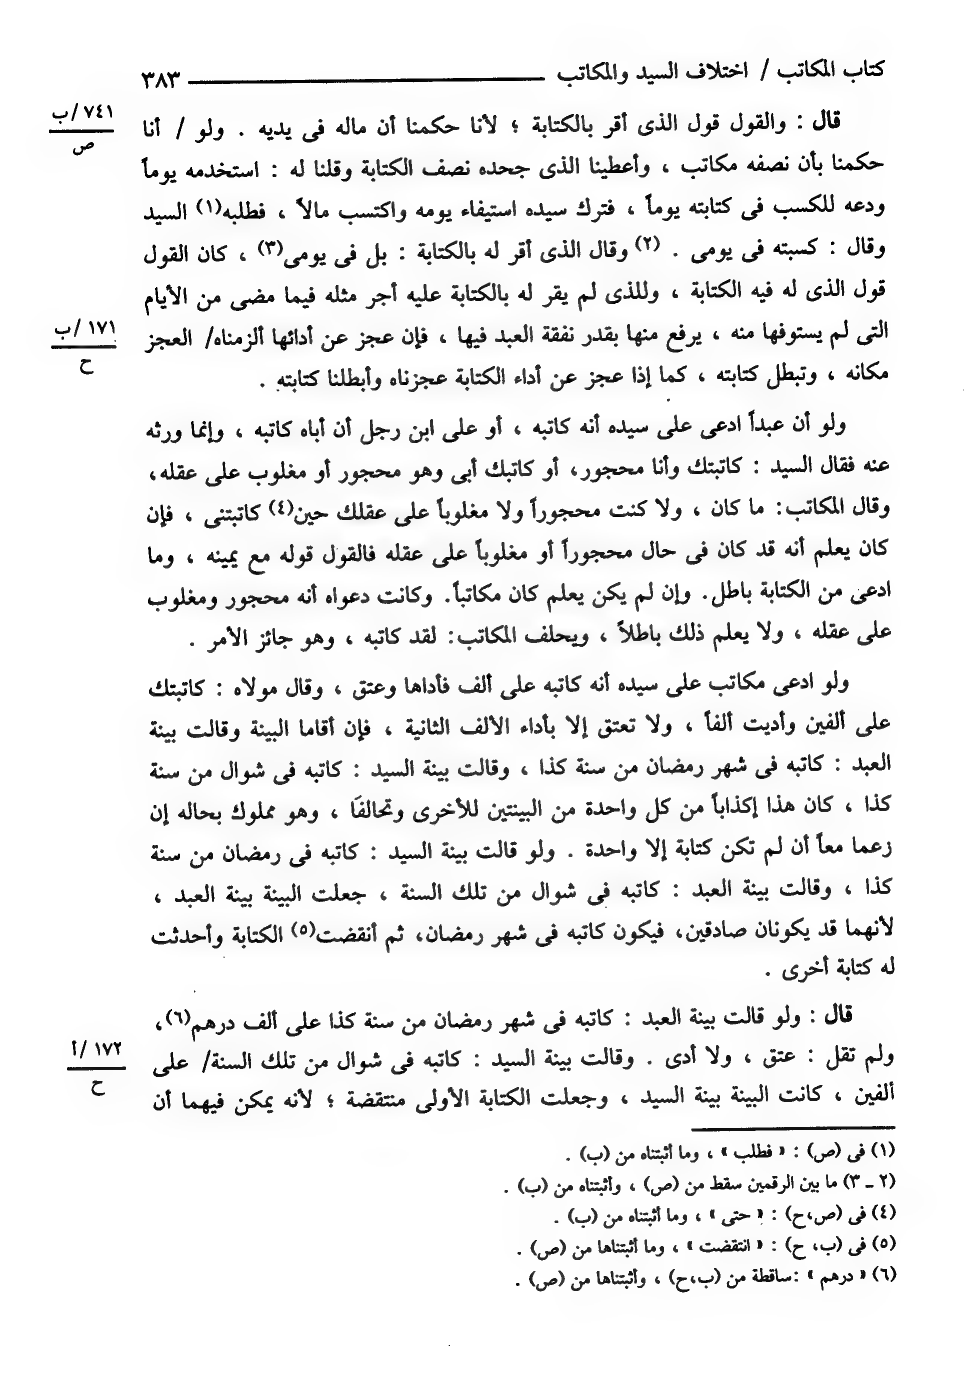 كتاب المكاتب / اختلاف السيد والمكاتب ٣٨٣
قال : والقول قول الذى أقر بالكتابة ؛ لأنا حكمنا أن ماله فى يديه . ولو / أنا
٧٤١/ب
ص
حكمنا بأن نصفه مكاتب ، وأعطينا الذى جحده نصف الكتابة وقلنا له : استخدمه يوماً
ودعه للكسب فى كتابته يوماً ، فترك سيده استيفاء يومه واكتسب مالاً ، فطلبه(١) السيد
وقال : كسبته فى يومى . (٢) وقال الذى أقر له بالكتابة : بل فى يومى(٣) ، كان القول
قول الذى له فيه الكتابة ، وللذى لم يقر له بالكتابة عليه أجر مثله فيما مضى من الأيام
التى لم يستوفها منه ، يرفع منها بقدر نفقة العبد فيها ، فإن عجز عن أدائها ألزمناه/ العجز
١٧١/ب
ح
مكانه ، وتبطل كتابته ، كما إذا عجز عن أداء الكتابة عجزناه وأبطلنا كتابته .
ولو أن عبداً ادعى على سيده أنه كاتبه ، أو على ابن رجل أن أباه كاتبه ، وإنما ورثه
عنه فقال السيد : كاتبتك وأنا محجور، أو كاتبك أبى وهو محجور أو مغلوب على عقله،
وقال المكاتب: ما كان ، ولا كنت محجوراً ولا مغلوباً على عقلك حين(٤) كاتبتنى ، فإن
كان يعلم أنه قد كان فى حال محجوراً أو مغلوباً على عقله فالقول قوله مع يمينه ، وما
ادعى من الكتابة باطل. وإن لم يكن يعلم كان مكاتباً. وكانت دعواه أنه محجور ومغلوب
على عقله ، ولا يعلم ذلك باطلاً ، ويحلف المكاتب: لقد كاتبه ، وهو جائز الأمر .
ولو ادعى مكاتب على سيده أنه كاتبه على ألف فأداها وعتق ، وقال مولاه : كاتبتك
على ألفين وأديت ألفاً ، ولا تعتق إلا بأداء الألف الثانية ، فإن أقاما البينة وقالت بينة
العبد : كاتبه فى شهر رمضان من سنة كذا ، وقالت بينة السيد : كاتبه فى شوال من سنة
كذا ، كان هذا إكذاباً من كل واحدة من البينتين للأخرى وتحالفَا ، وهو مملوك بحاله إن
زعما معاً أن لم تكن كتابة إلا واحدة . ولو قالت بينة السيد : كاتبه فى رمضان من سنة
كذا ، وقالت بينة العبد : كاتبه فى شوال من تلك السنة ، جعلت البينة بينة العبد ،
لأنهما قد يكونان صادقين، فيكون كاتبه فى شهر رمضان، ثم أنقضت(٥) الكتابة وأحدثت
له كتابة أخرى .
قال : ولو قالت بينة العبد : كاتبه فى شهر رمضان من سنة كذا على ألف درهم(٦)،
ولم تقل : عتق ، ولا أدى . وقالت بينة السيد : كاتبه فى شوال من تلك السنة/ على
١٧٢/أ
ح
ألفين ، كانت البينة بينة السيد ، وجعلت الكتابة الأولى منتقضة ؛ لأنه يمكن فيهما أن
(١) فى (ص) : « فطلب » ، وما أثبتناه من (ب) .
(٢ ـ ٣) ما بين الرقمين سقط من (ص) ، وأثبتناه من (ب) .
(٤) فى (ص،ح) : « حتى » ، وما أثبتناه من (ب) .
(٥) فى (ب، ح) : « انتقضت » ، وما أثبتناها من (ص) .
(٦) « درهم » :ساقطة من (ب،ح) ، وأثبتناها من (ص) .